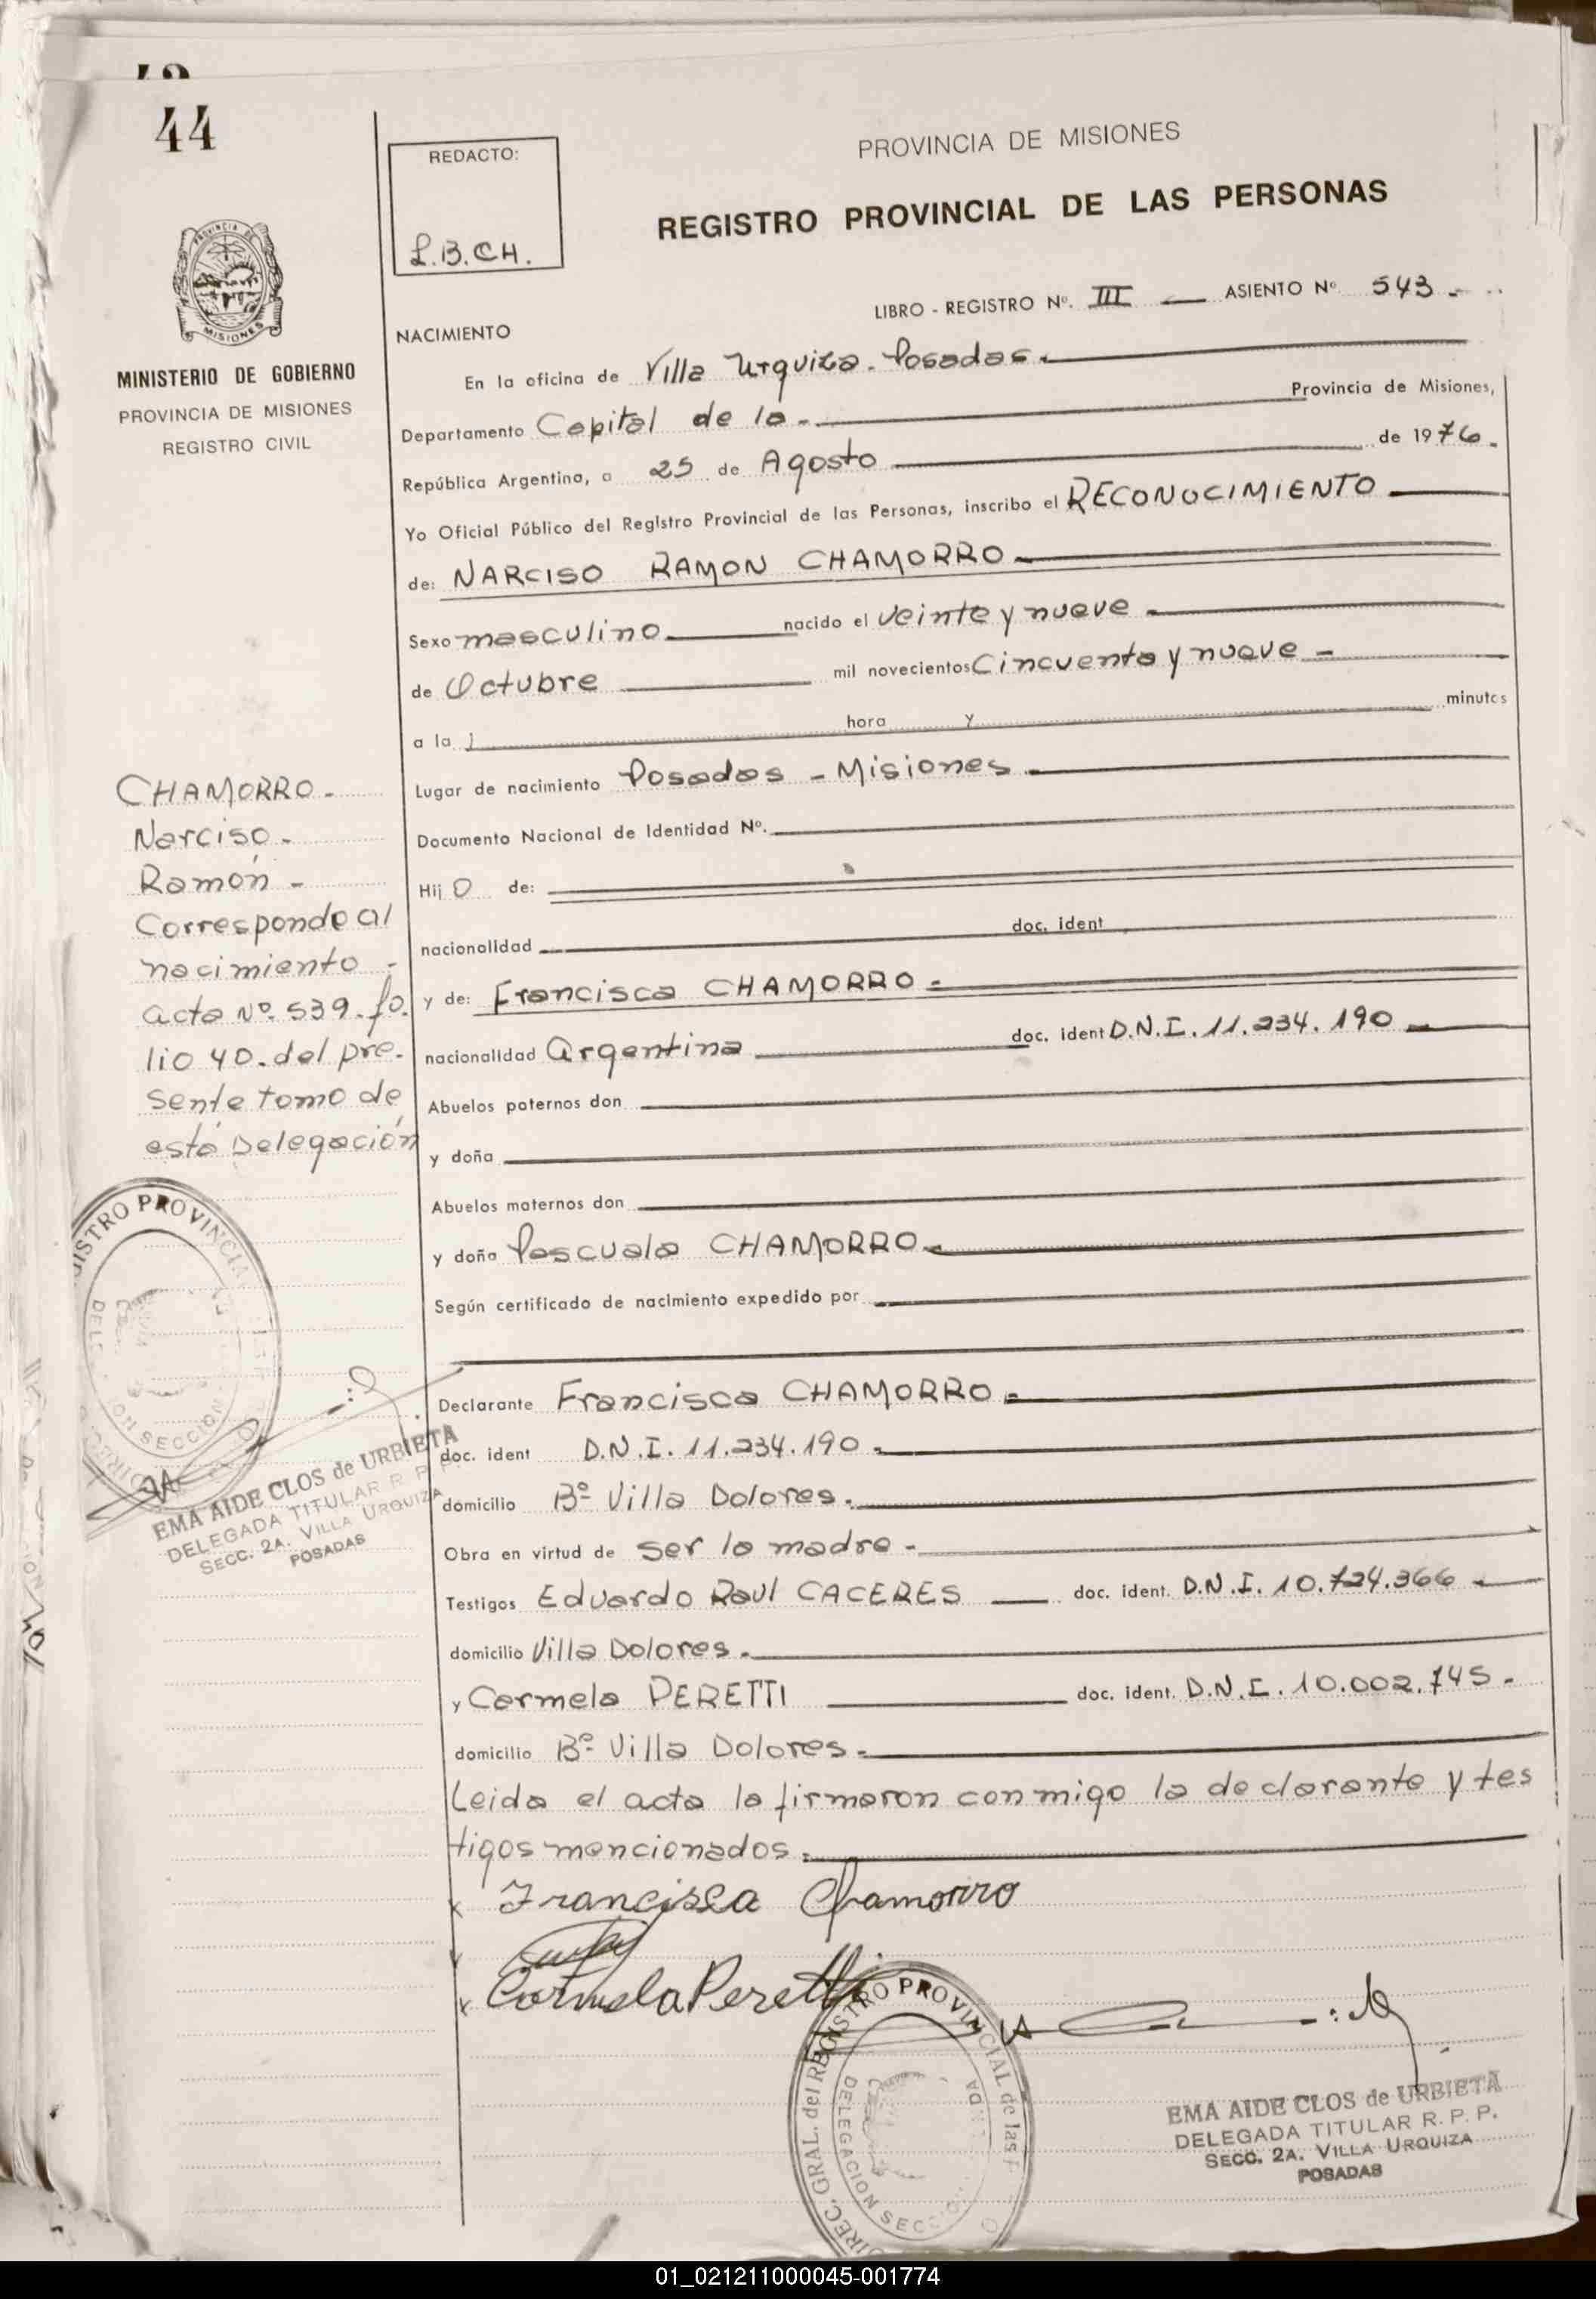 44
REDACTO:
L.B.CH.
PROVINCIA DE MISIONES
REGISTRO PROVINCIAL DE LAS PERSONAS
PROVINCIA DE
MISIONES
MINISTERIO DE GOBIERNO
PROVINCIA DE MISIONES
REGISTRO CIVIL
LIBRO - REGISTRO Nº. III ASIENTO Nº 543.-
NACIMIENTO
En la oficina de Villa Urquiza. Posadas.
Departamento Capital de la.- Provincia de Misiones,
República Argentina, a 25 de Agosto de 1976.
Yo Oficial Público del Registro Provincial de las Personas, inscribo el RECONOCIMIENTO
de: NARCISO RAMON CHAMORRO
Sexo masculino nacido el veinte y nueve
de Octubre mil novecientos Cincuenta y nueve -
a la hora y minutos
Lugar de nacimiento Posadas - Misiones
Documento Nacional de Identidad Nº.
Hij o de:
nacionalidad doc. ident
y de: Francisca CHAMORRO
nacionalidad Argentina doc. ident D.N.I. 11.234.190
Abuelos paternos don
y doña
Abuelos maternos don
y doña Pascuala CHAMORRO
Según certificado de nacimiento expedido por
Declarante Francisca CHAMORRO
doc. ident D.N.I. 11.234.190
domicilio Bº Villa Dolores.
Obra en virtud de ser la madre -
Testigos Eduardo Raul CACERES doc. ident. D.N.I. 10.724.366
domicilio Villa Dolores.
y Carmela PERETTI doc. ident. D.N.I. 10.002.745 -
domicilio Bº Villa Dolores.
Leida el acta la firmaron conmigo la declarante y tes
tigos mencionados
x Francisca Chamorro
x Carmela Peretti
CHAMORRO -
Narciso -
Ramón -
Corresponde al
nacimiento -
acta Nº. 539. fo.
lio 40. del pre.
sente tomo de
está Delegación
REGISTRO PROVINCIAL
DELEGACION SECCION
EMA AIDE CLOS de URBIETA
DELEGADA TITULAR R. P. P.
SECC. 2A. VILLA URQUIZA
POSADAS
DIREC. GRAL. del REGISTRO PROVINCIAL de las
DELEGACION SECCION
EMA AIDE CLOS de URBIETA
DELEGADA TITULAR R. P. P.
SECC. 2A. VILLA URQUIZA
POSADAS
01_021211000045-001774